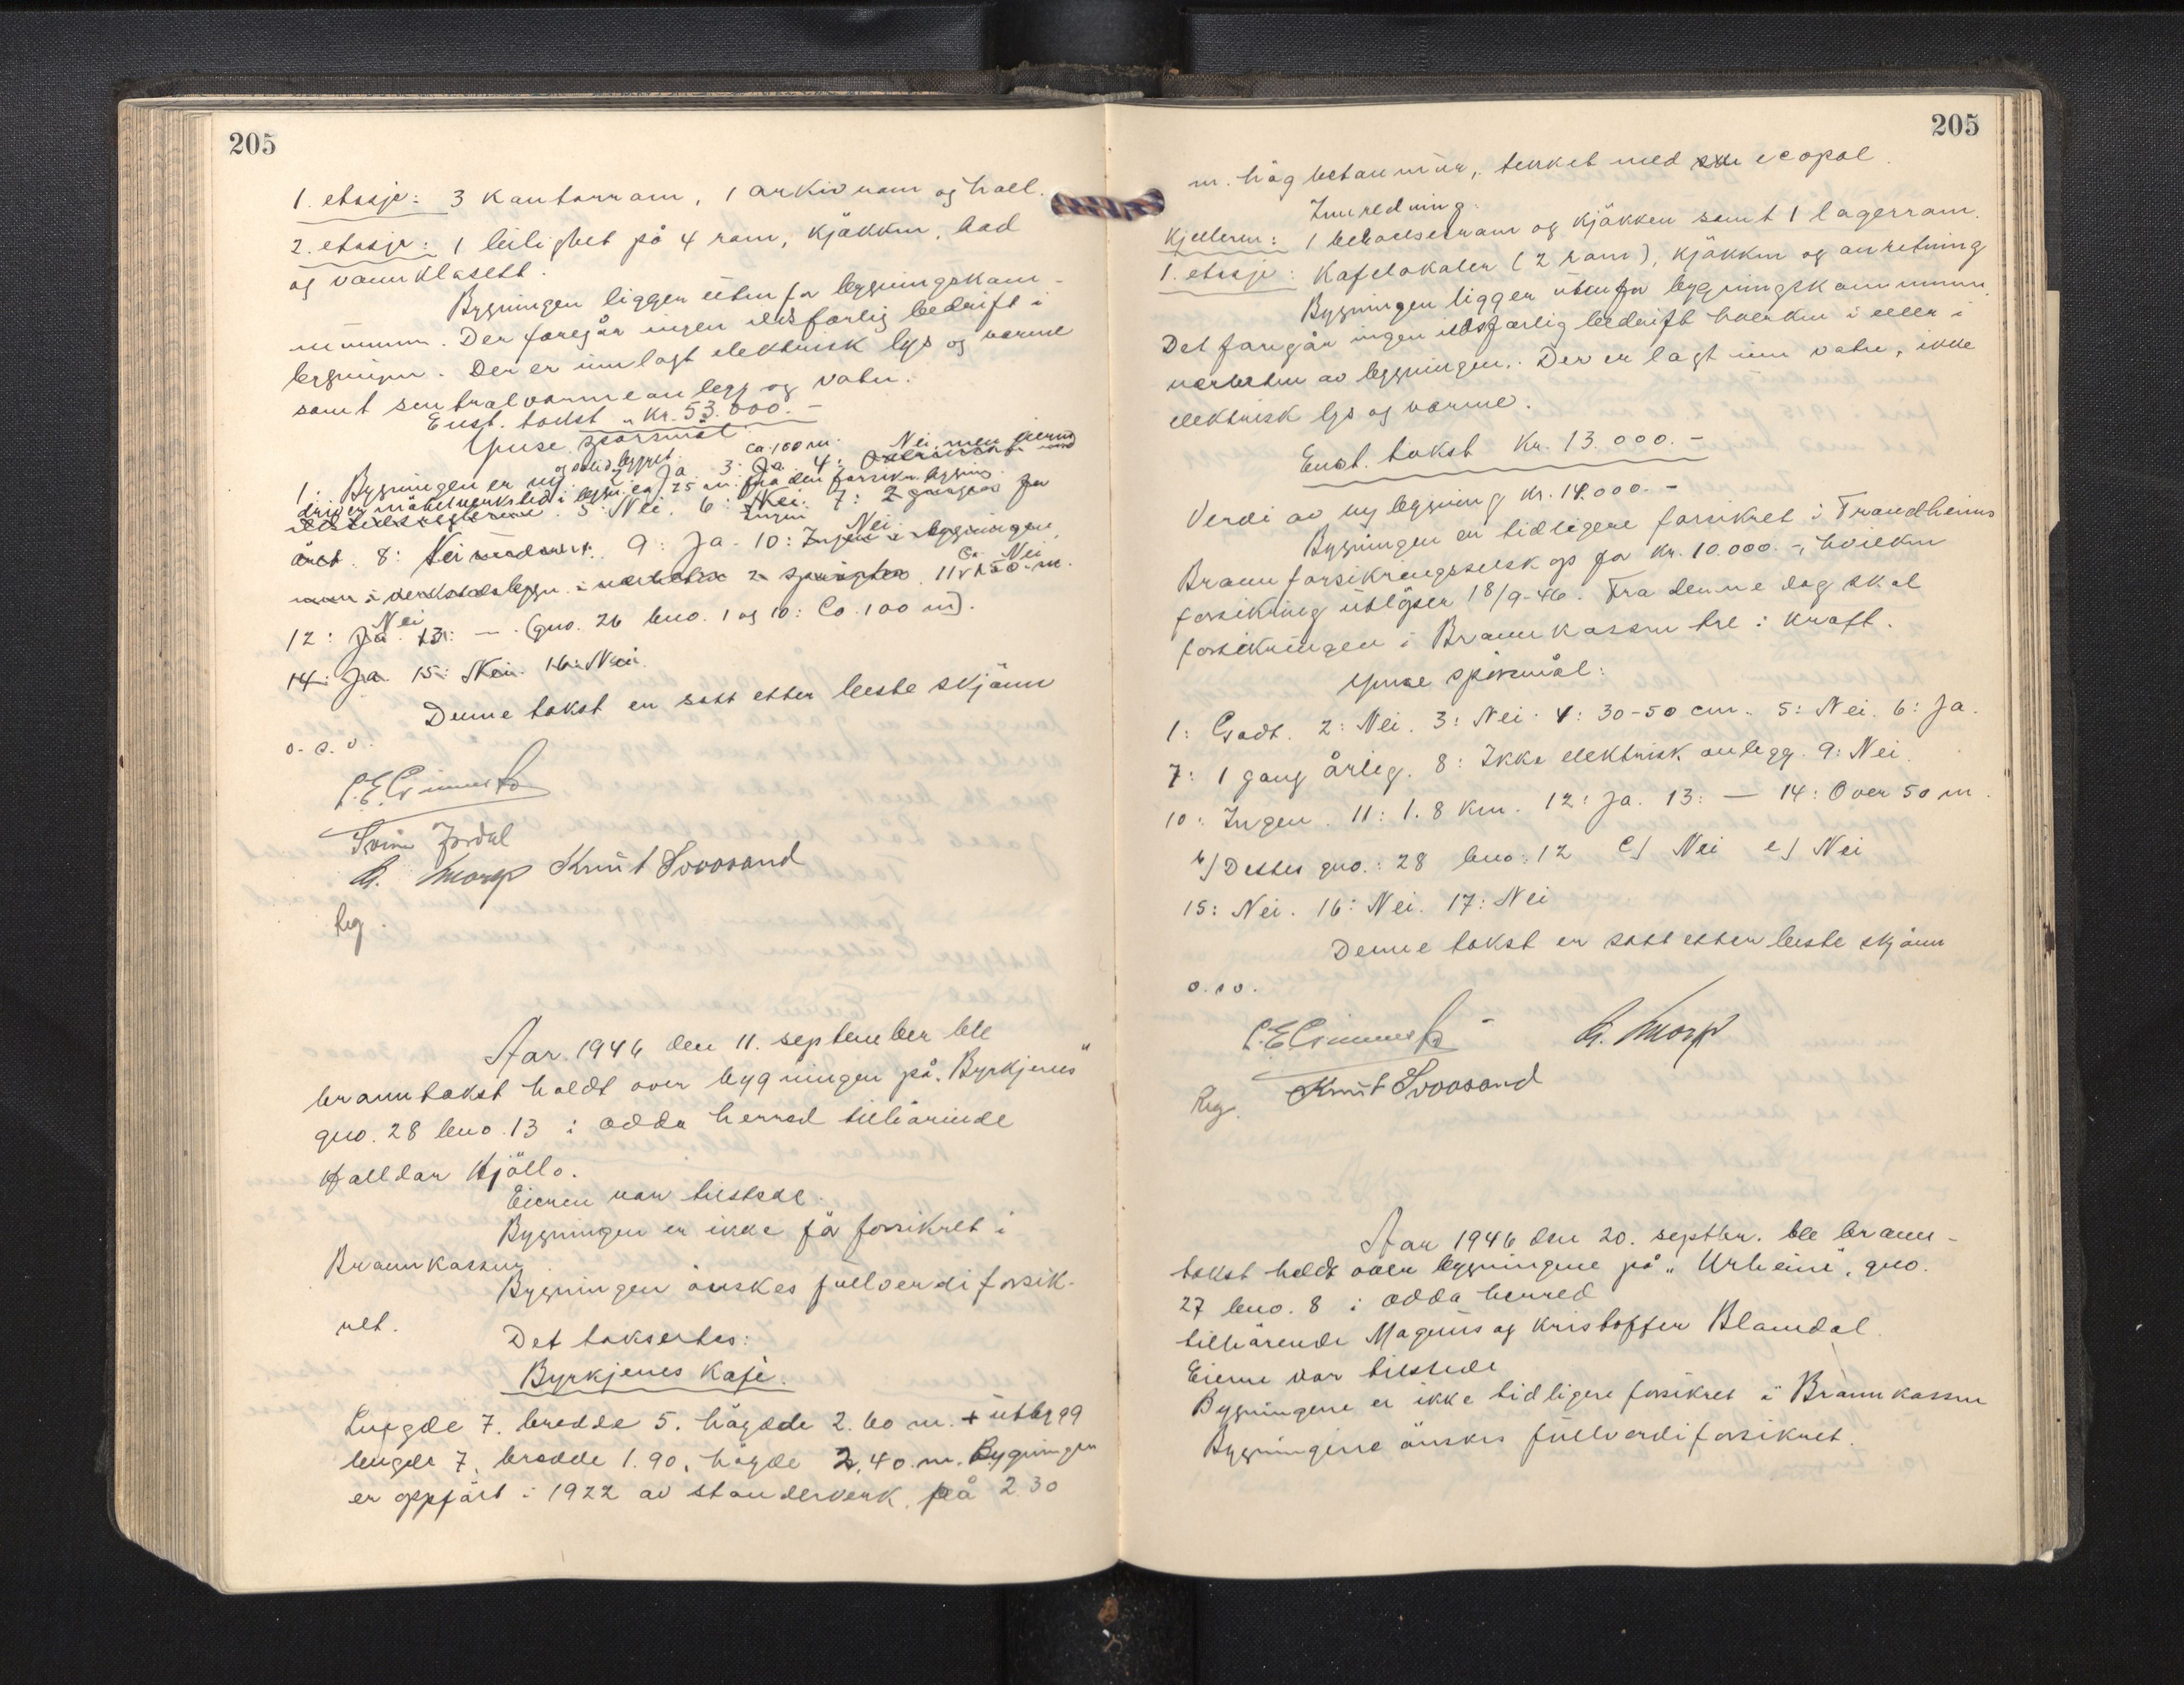 205
1. etasje: 3 kontorrom, 1 arkivrom og hall.
2. etasje: 1 leilighet på 4 rom, kjøkken, bad
og vannklosett.
Bygningen ligger utenfor bygningskom-
munen. Der foregår ingen ildsfarlig bedrift i
bygningen. Der er innlagt elektrisk lys og varme
samt sentralvarmeanlegg og vatn.
Enst. takst kr. 53.000.-
Ymse spørsmål.
1. Bygningen er ny og solid bygget. Ja. 3: Ja. ca. 100 m. 4: Nei, men
drives møbelverksted i bygn. ca. 25 m. fra den forsikr. bygning
5: Nei. 6: Nei. 7: 2 ganger for
året. 8: Nei 9: Ja. 10: Ingen Nei
i verkstadbygn. 11: 150 m.
12: Ja. Nei 13: — (gno. 26 bno. 1 og 10: Ca. 100 m).
14: Ja. 15: Nei. 16: Nei.
Denne takst er satt etter beste skjønn
o.s.v.
Svein Jordal
G. Knut Svoosand
Reg.
Aar 1946 den 11. september ble
branntakst holdt over bygningen på "Byrkjenes"
gno. 28 bno. 13 i Odda herred tilhørende
Halldor Hjøllo.
Eieren var tilstede.
Bygningen er ikke før forsikret i
Brannkassen
Bygningen ønskes fullverdiforsik-
ret.
Det takseres:
Byrkjenes Kafe.
Lengde 7. bredde 5. høgde 2.60 m. + utbygg
lengde 7. bredde 1.90, høgde 2,40 m. Bygningen
er oppført i 1922 av standerverk på 2.30
205
m. høg betonmur, tekket med icopal.
Innredning.
Kjelleren: 1 beboelsesrom og kjøkken samt 1 lagerrom.
1. etasje: Kafelokaler (2 rom), kjøkken og anretning
Bygningen ligger utenfor bygningskommunen.
Det foregår ingen ildsfarlig bedrift hverken i eller i
nærheten av bygningen. Der er lagt inn vatn, ikke
elektrisk lys og varme.
Enst. takst kr. 13.000.-
Verdi av ny bygning kr. 14.000.-
Bygningen er tidligere forsikret i Trondheims
Brannforsikringsselskap for kr. 10.000.-, hvilken
forsikring utløper 18/9-46. Fra denne dag skal
forsikringen i Brannkassen tre i kraft.
Ymse spørsmål:
1: Godt. 2: Nei. 3: Nei. 4: 30-50 cm. 5: Nei. 6: Ja.
7: 1 gang årlig. 8: Ikke elektrisk anlegg. 9: Nei.
10: Ingen. 11: 1.8 km. 12: Ja. 13: — 14: Over 50 m.
b) Dettes gno.: 28 bno: 12 c) Nei e) Nei
15: Nei. 16: Nei. 17: Nei
Denne takst er satt etter beste skjønn
o.s.v.
G.
Reg. Knut Svoosand
Aar 1946 den 20. septbr. ble brann-
takst holdt over bygningene på "Urheim", gno.
27 bno. 8 i Odda herred
tilhørende Magnus og Kristoffer Blamdal.
Eierne var tilstede
Bygningene er ikke tidligere forsikret i Brannkassen
Bygningene ønskes fullverdiforsikret.